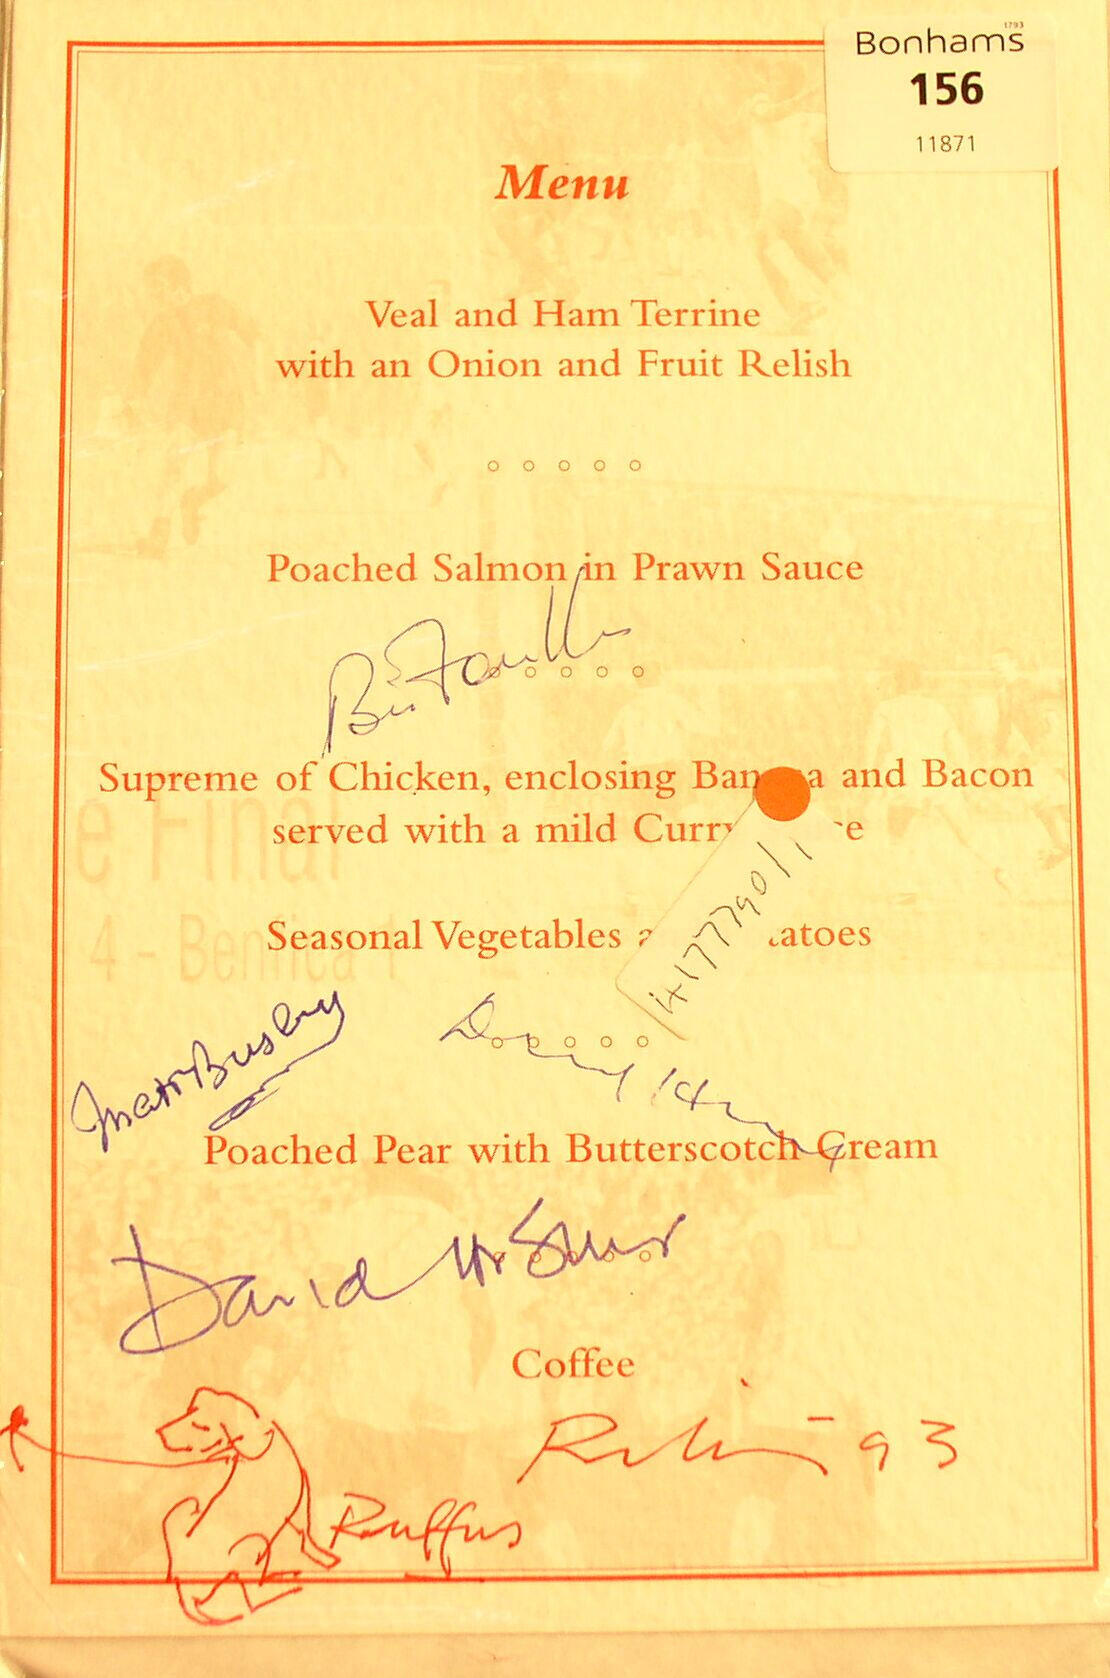 1793
Bonhams
156
11871
Menu
Veal and Ham Terrine
with an Onion and Fruit Relish
Poached Salmon in Prawn Sauce
Supreme of Chicken, enclosing Ban a and Bacon
served with a mild Curry e
e Final
Seasonal Vegetables a atoes
4 - Benfica 1
4177790/1
Matt Busby
Poached Pear with Butterscotch Cream
David
Coffee
93
Ruffus